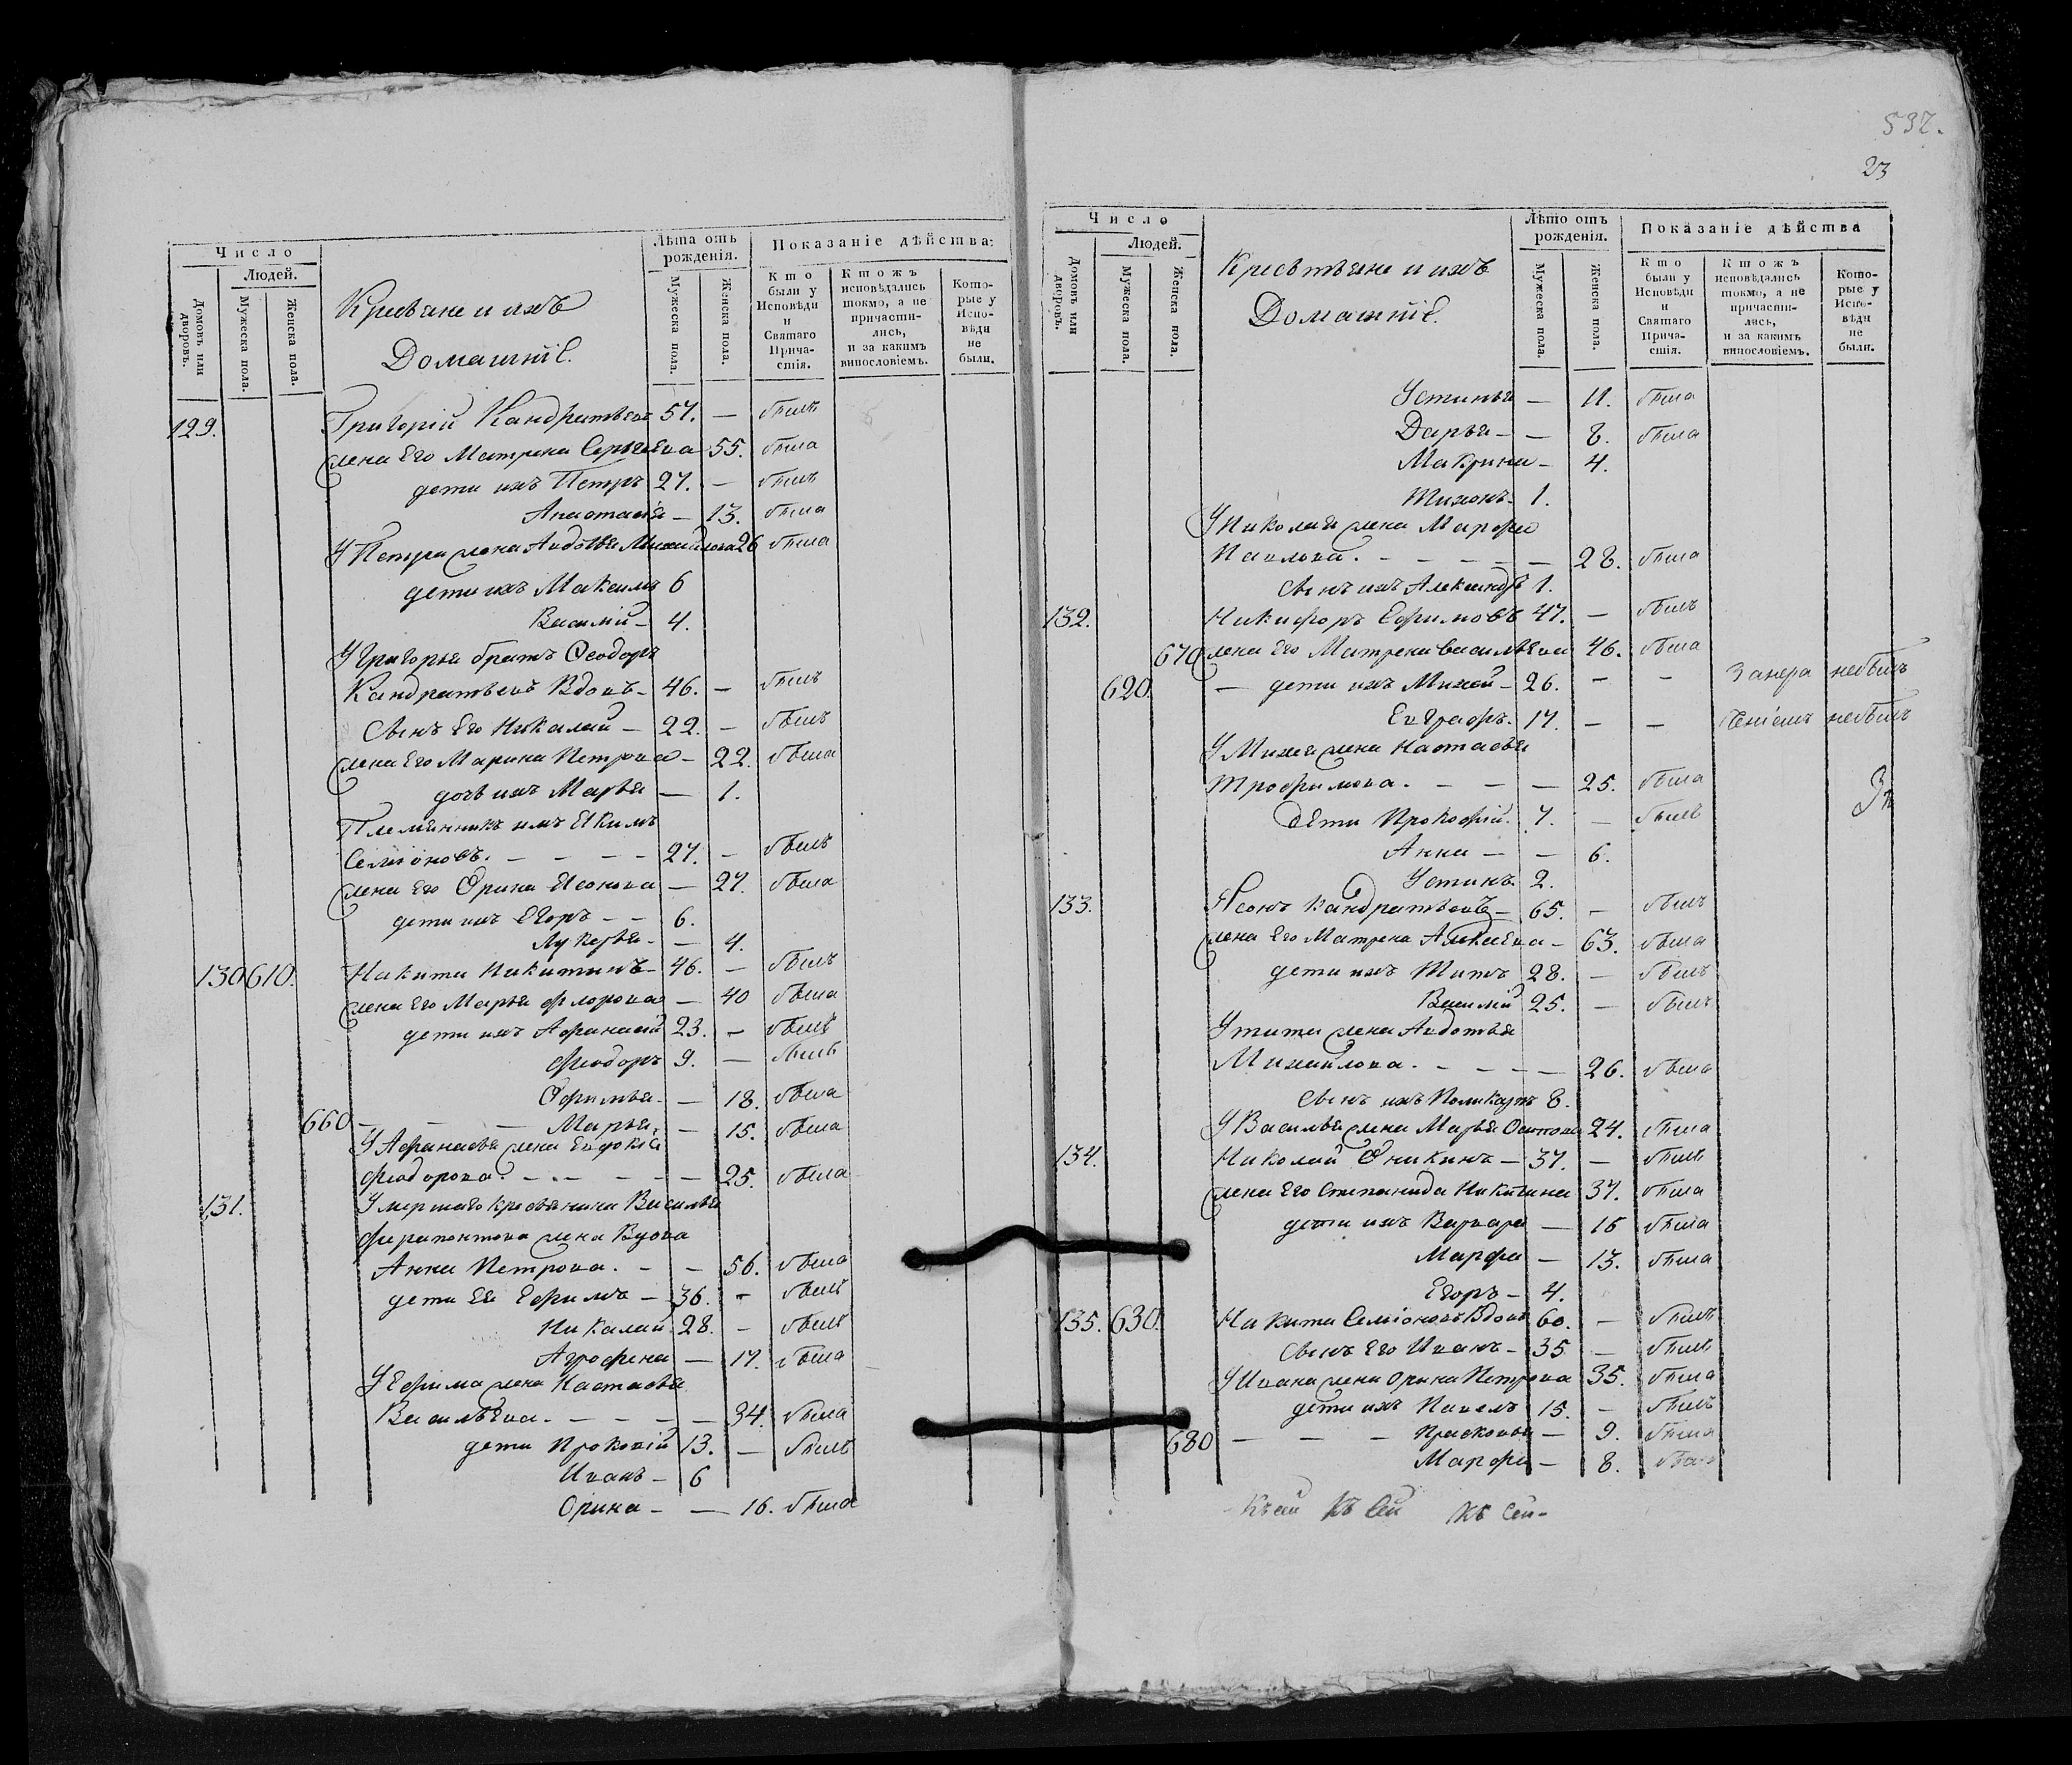 Число
Людей.
Домовъ или дворовъ.
Мужеска пола.
Женска пола.
Кресьяне и ихъ
Домашніе.
Лѣта отъ рожденія.
Мужеска пола.
Женска пола.
Показаніе дѣйства:
Кто были у Исповѣди и Святаго Причастія.
Ктожъ исповѣдались токмо, а не причастились, и за какимъ винословіемъ.
Которые у Исповѣди не были.
129. Григорій Кандратьевъ 57. — былъ
жена Его Матрена Сергѣева 55. была
дети ихъ Петръ 27. — былъ
Анастасія — 13. была
У Петра жена Авдотья Михайлова 26 была
дети ихъ Максимъ 6
Василій — 4.
У Григорья братъ Ѳеодоръ
Кандратьевъ Вдовъ — 46. — былъ
Сынъ Его Николай — 22. — былъ
жена Его Марина Петрова — 22. была
дочь ихъ Марья — 1.
Племянникъ имъ Якимъ
Семіоновъ. — — — — 27. — былъ
жена Его Орина Ясонова — 27. была
дети ихъ Егоръ — — 6.
Лукерья — — 4.
130 610. Никита Никитинъ — 46. — былъ
жена Его Марья Флорова — 40 была
дети ихъ Афанасій 23. — былъ
Феодоръ 9. — былъ
Офимья — — 18. была
660 — — — Марья — — 15. была
У Афанасья жена Евдокія
Феодорова. — — — — 25. была
131. Умершаго кресьянина Василья
Ферапонтова жена Вдова
Анна Петрова. — — 56. была
дети Ея Ефимъ — 36. — былъ
Николай 28. — былъ
Агрофена — 17. была
У Ефима жена Настасья
Васильева. — — — — — 34. была
дети Прокопій 13. — былъ
Иванъ — 6
Орина — — 16. была
537.
23
Число
Людей.
Домовъ или дворовъ.
Мужеска пола.
Женска пола.
Кресьтьяне и ихъ
Домашніе.
Лѣто отъ рожденія.
Мужеска пола.
Женска пола.
Показаніе дѣйства
Кто были у Исповѣди и Святаго Причастія.
Ктожъ исповѣдались токмо, а не причастились, и за какимъ винословіемъ.
Которые у Исповѣди не были.
Устинья — 11. была
Дарья — — 8. была
Макрина — 4.
Тихонъ — 1.
У Николая жена Марфа
Павлова. — — — — — 28. была
Сынъ ихъ Александръ 1.
132. Никифоръ Ефимовъ 47. — былъ
670 жена Его Матрена Васильева 46. была
620. — дети ихъ Михей — 26. — — Занера небылъ
Евграфъ. 17. — — ченіемъ небылъ
У Михея жена Настасья
Трофимова. — — — 25. была
Дѣти Прокофій. 7. — былъ
Анна — — 6.
Устинъ 2.
133. Ясонъ Кандратьевъ — 65. — былъ
жена Его Матрена — 63. была
дети ихъ Титъ 28. — былъ
Василій 25. — былъ
У Тита жена Авдотья
Михайлова. — — — — 26. была
Сынъ ихъ Поликарпъ 8.
У Василья жена Марья Осипова 24. была
134. Николай Оникинъ — 37. — былъ
жена Его Степанида Никитина 37. была
дети ихъ Варвара — 15 была
Марфа — 13. была
Егоръ — 4.
135. 630. Никита Семіоновъ Вдовъ 60. — былъ
Сынъ Его Иванъ — 35 — былъ
У Ивана жена Орина Петрова 35. была
дети ихъ Павелъ 15. — былъ
680 — — — Прасковья — 9. была
Марфа — 8. была
Къ сей Къ Сей Къ Сей —